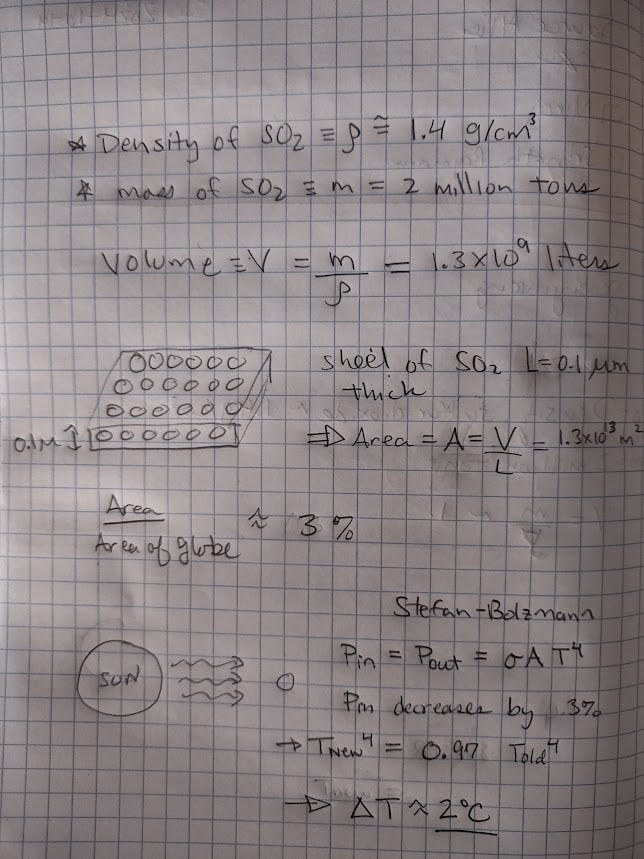 * Density of SO₂ ≡ ρ ≅ 1.4 g/cm³
* mass of SO₂ ≡ m = 2 million tons
Volume ≡ V = m/ρ = 1.3×10⁹ liters
sheel of SO₂ L=0.1 μm
thick
0.1M ↕
⇒ Area = A = V/L = 1.3×10¹³ m²
Area / Area of globe ≈ 3%
Stefan-Bolzmann
SUN
Pin = Pout = σAT⁴
Pin decreases by 3%
→ TNew⁴ = 0.97 Told⁴
⇒ ΔT ≈ 2°C